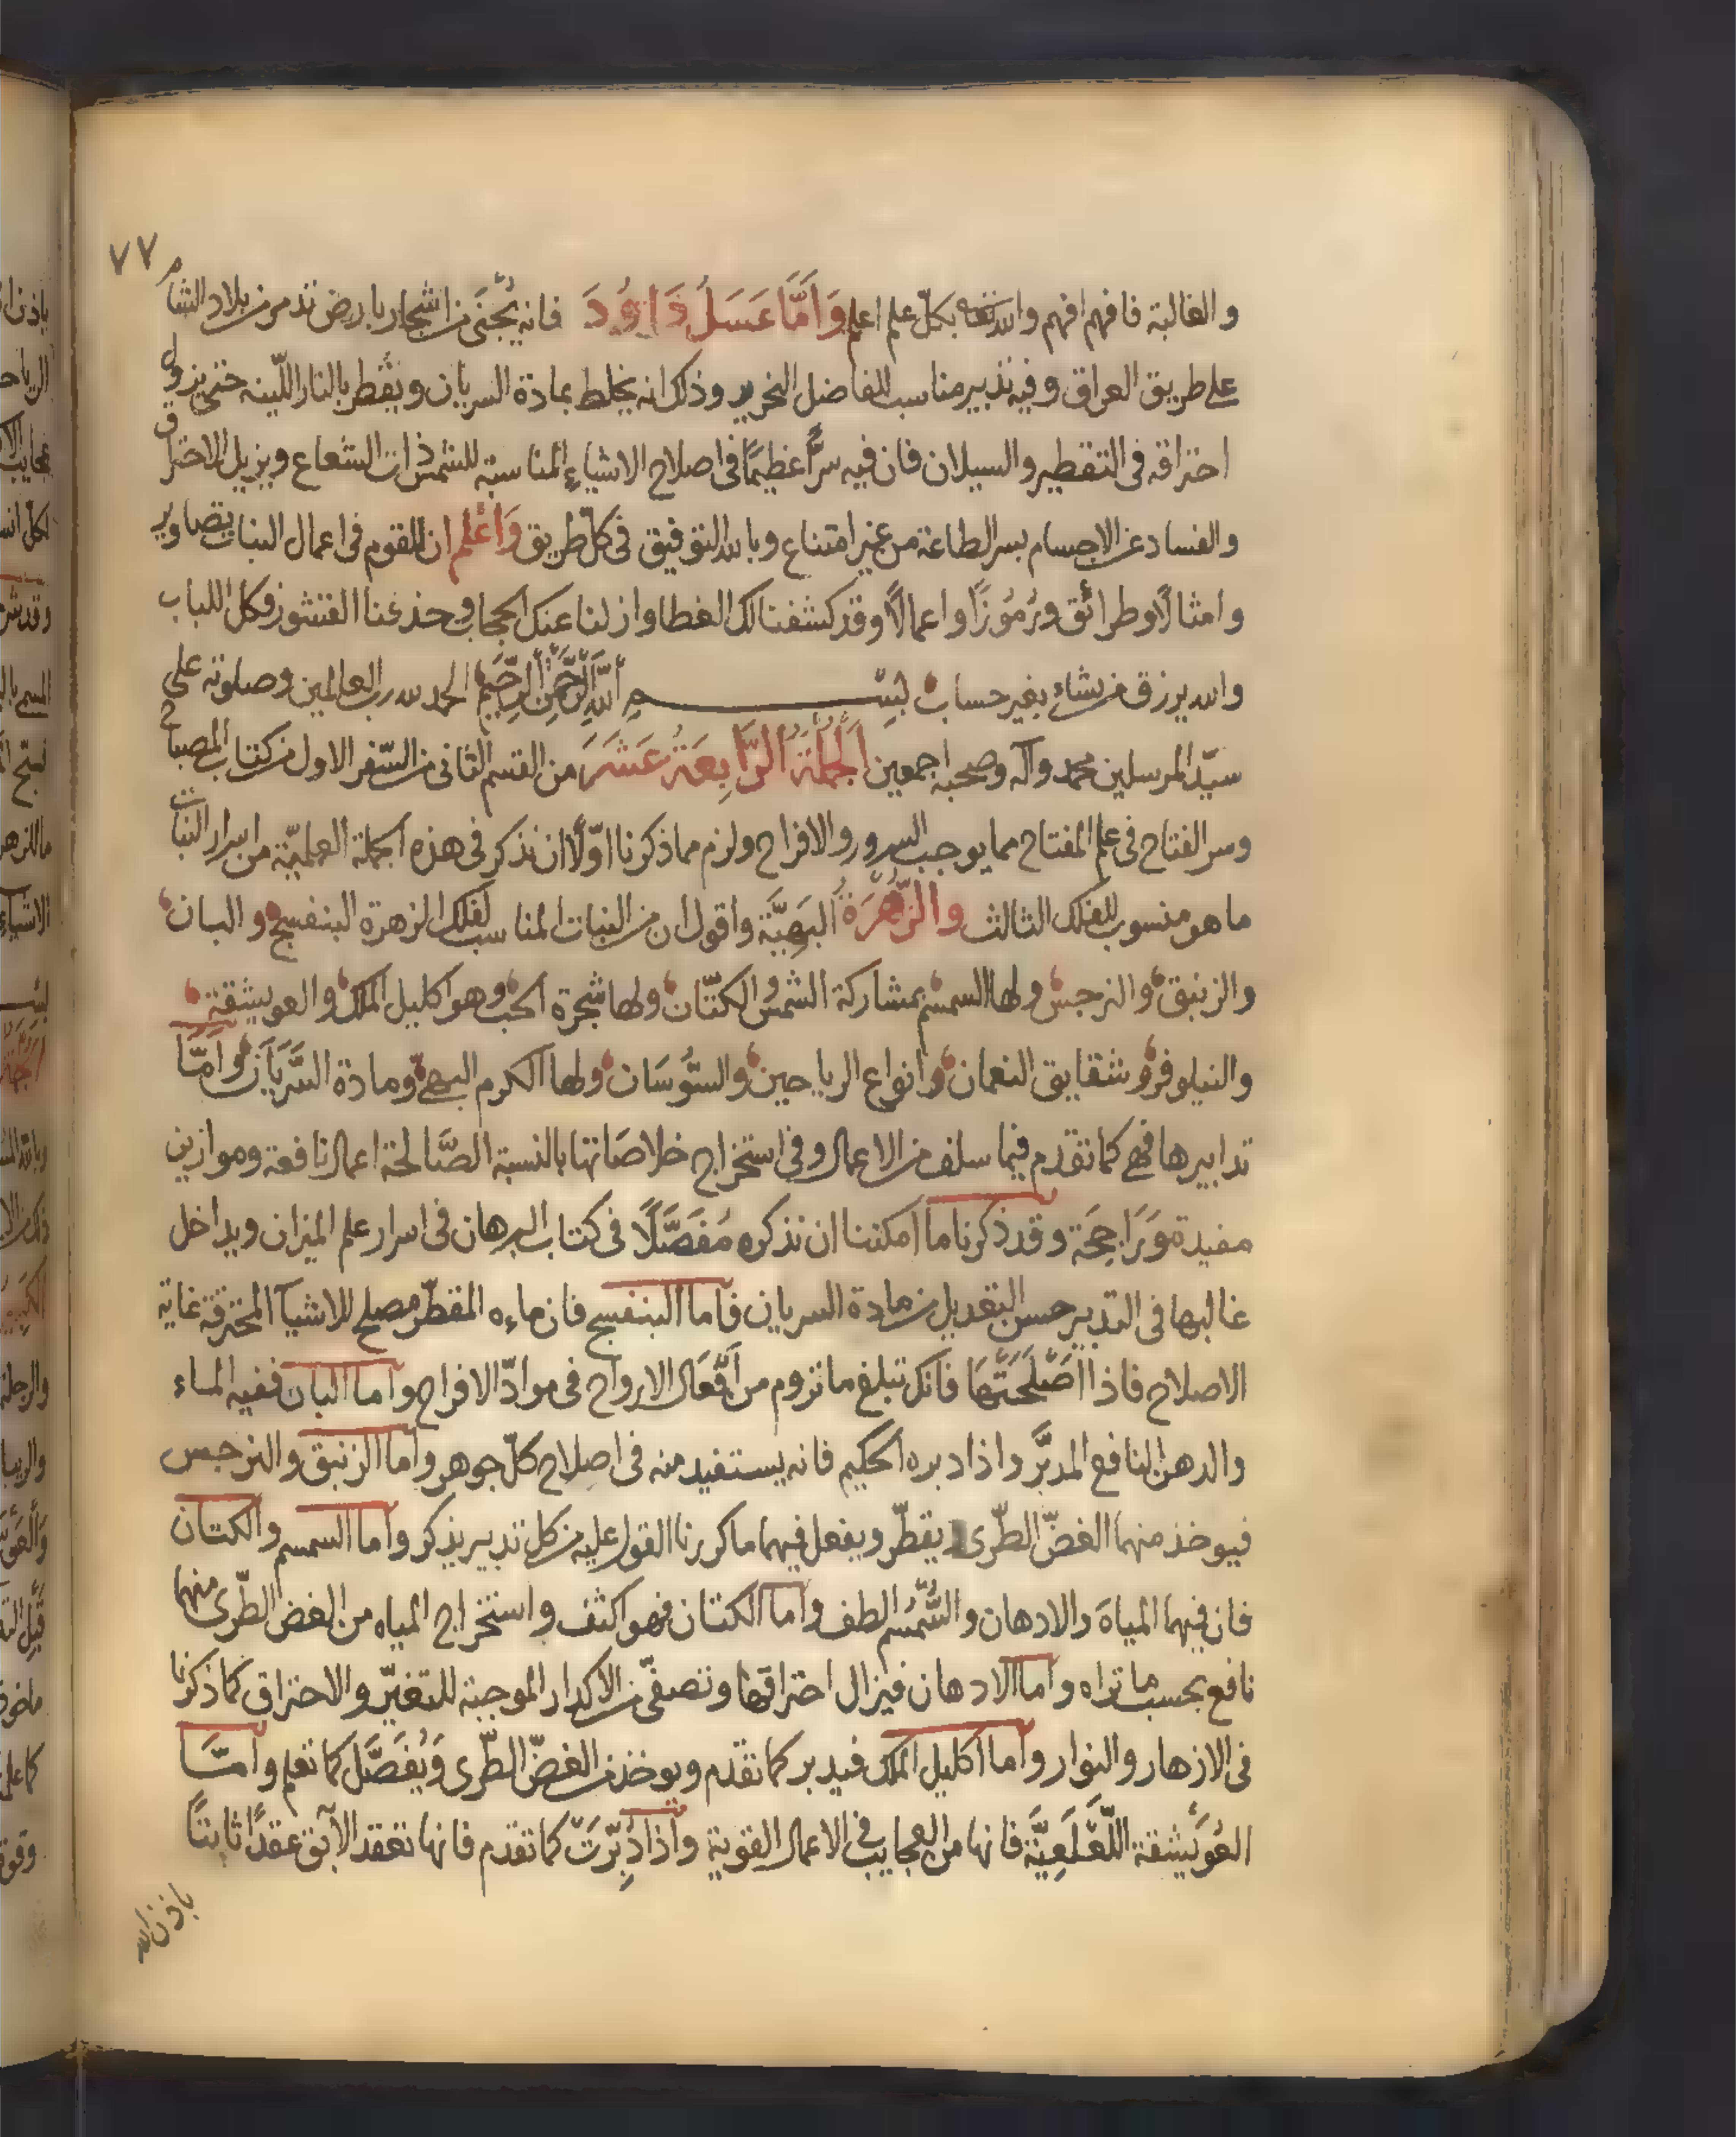 ٧٧
والغالبة فافهم افهم والله تعالى بكلّ علم اعلم وَاَمَّا عَسَلُ دَاوُدَ فانه يُجْتَنَى من اشجار بارض تدمر من بلاد الشام
على طريق العراق وفيه تدبير مناسب للفاضل النحرير وذلك انه يخلط بمادة السريان ويقطر بالنار اللّينه حتى يزول
احتراقه فى التقطير والسيلان فان فيه سرًّا عظيمًا فى اصلاح الاشياءِ المناسبة للشمس ذات الشعاع ويزيل الاحتراق
والفساد عن الاجسام بسر الطاعة من غير امتناع وبالله التوفيق فى كلّ طريق وَاعْلم ان للقوم فى اعمال النبات تصاوير
وامثالًا وطرائق ورُمُوزًا واعمالًا وقد كشفنا لك الغطا وازلنا عنك الحجاب وحذفنا القشور وكل اللباب
والله يرزق من يشاء بغير حساب بسم اللَّهِ الرَّحْمَنِ الرَّحِيم الحمد لله رب العالمين وصلوته على
سيّد المرسلين محمد وآله وصحبه اجمعين اَلْجُمْلَةُ الرَّابِعَةُ عَشَرَ من القسم الثانى من السّفر الاول من كتاب المصباح
وسر الفتاح فى علم المفتاح مما يوجب السرور والافراح ولزم مما ذكرنا اوّلًا ان نذكر فى هذه الجملة العلميّة من اسرار النبات
ما هو منسوب للفلك الثالث والزُّهَرَةُ البَهِيَّة واقول ان من النبات المناسب لفلك الزهرة البنفسج والبان
والزنبق والنرجس ولها السمسم بمشاركة الشمس والكتّان ولها شجرة الحب وهو اكليل الملك والعويشقة
والنيلوفر وشقايق النعمان وانواع الرياحين والسَّوْسَان ولها الكرم البهىّ ومادة السَّرَيَان وَاَمّا
تدابيرها فهى كما تقدم فيما سلف من الاعمال وفى استخراج خلاصَاتها بالنسبة الصَّالحة اعمال نافعة وموازين
مفيدة وَرَاجِحَة وقد ذكرنا ما امكننا ان نذكره مُفَصَّلًا فى كتاب البرهان فى اسرار علم الميزان ويداخل
غالبها فى التدبير حسن التعديل من مادة السريان فاما البنفسج فان ماءه المقطّر مصلح للاشيآ المحترقة غاية
الاصلاح فاذا اَصْلَحَتْهَا فانك تبلغ ما تروم من اَفْعَال الارواح فى موادّ الافراح واما البان ففيه الماء
والدهن النافع المدبَّر واذا دبره الحكيم فانه يستفيد منه فى اصلاح كلّ جوهر واما الزنبق والنرجس
فيوخذ منهما الغضّ الطّرى يقطّر ويفعل فيهما ما كررنا القول عليه من كل تدبير يذكر واما السمسم والكتان
فان فيهما المياهَ والادهان والسُّمْسُم الطف واما الكتان فهو اكثف واستخراج المياه من الغض الطّرى منهما
نافع بحسب ما تراه واما الادهان فيزال احتراقها وتصفّى من الاكدار الموجبة للتغيّر والاحتراق كما ذكرنا
فى الازهار والنوار واما اكليل الملك فيدبر كما تقدم ويوخذ من الغضّ الطّرى وَيُفَصَّل كما تعلم وامّا
العُوَيْشقة اللَّعْلَعِيَّة فانها من العجايب فى الاعمال القوية واذا دُبِّرَتْ كما تقدم فانها تعقد الآبق عقدًا ثابتًا
باذن الله